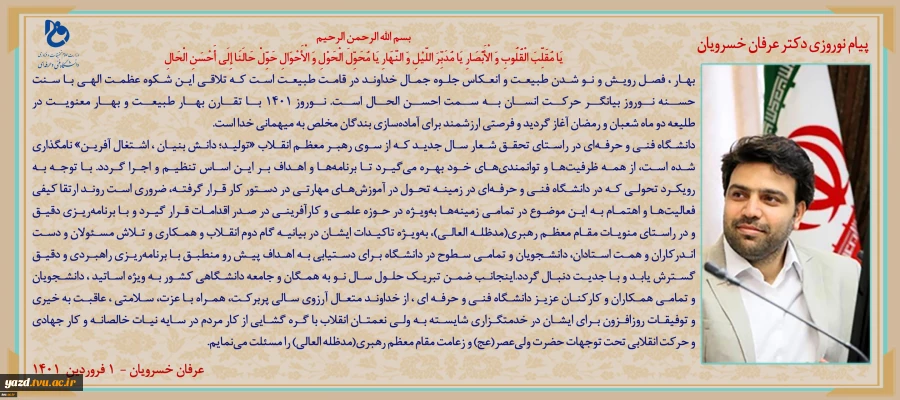 پیام نوروزی دکتر عرفان خسرویان
بسم الله الرحمن الرحیم
یَا مُقَلِّبَ الْقُلُوبِ وَ الْأَبْصَارِ یَا مُدَبِّرَ اللَّیْلِ وَ النَّهَارِ یَا مُحَوِّلَ الْحَوْلِ وَ الْأَحْوَالِ حَوِّلْ حَالَنَا إِلَى أَحْسَنِ الْحَالِ
بهار ، فصل رویش و نو شدن طبیعت و انعکاس جلوه جمال خداوند در قامت طبیعت است که تلاقی این شکوه عظمت الهی با سنت
حسنه نوروز بیانگر حرکت انسان به سمت احسن الحال است. نوروز ۱۴۰۱ با تقارن بهار طبیعت و بهار معنویت در
طلیعه دو ماه شعبان و رمضان آغاز گردید و فرصتی ارزشمند برای آماده‌سازی بندگان مخلص به میهمانی خدا است.
دانشگاه فنی و حرفه‌ای در راستای تحقق شعار سال جدید که از سوی رهبر معظم انقلاب «تولید؛ دانش بنیان ، اشتغال آفرین» نامگذاری
شده است، از همه ظرفیت‌ها و توانمندی‌های خود بهره می‌گیرد تا برنامه‌ها و اهداف بر این اساس تنظیم و اجرا گردد. با توجه به
رویکرد تحولی که در دانشگاه فنی و حرفه‌ای در زمینه تحول در آموزش‌های مهارتی در دستور کار قرار گرفته، ضروری است روند ارتقا کیفی
فعالیت‌ها و اهتمام به این موضوع در تمامی زمینه‌ها به‌ویژه در حوزه علمی و کارآفرینی در صدر اقدامات قرار گیرد و با برنامه‌ریزی دقیق
و در راستای منویات مقام معظم رهبری(مدظله العالی)، به‌ویژه تاکیدات ایشان در بیانیه گام دوم انقلاب و همکاری و تلاش مسئولان و دست
اندرکاران و همت استادان، دانشجویان و تمامی سطوح در دانشگاه برای دستیابی به اهداف پیش رو منطبق با برنامه‌ریزی راهبردی و دقیق
گسترش یابد و با جدیت دنبال گردد.اینجانب ضمن تبریک حلول سال نو به همگان و جامعه دانشگاهی کشور به ویژه اساتید ، دانشجویان
و تمامی همکاران و کارکنان عزیز دانشگاه فنی و حرفه ای ، از خداوند متعال آرزوی سالی پربرکت، همراه با عزت، سلامتی ، عاقبت به خیری
و توفیقات روزافزون برای ایشان در خدمتگزاری شایسته به ولی نعمتان انقلاب با گره گشایی از کار مردم در سایه نیات خالصانه و کار جهادی
و حرکت انقلابی تحت توجهات حضرت ولی‌عصر(عج) و زعامت مقام معظم رهبری(مدظله العالی) را مسئلت می‌نمایم.
عرفان خسرویان - ۱ فروردین ۱۴۰۱
yazd.tvu.ac.ir